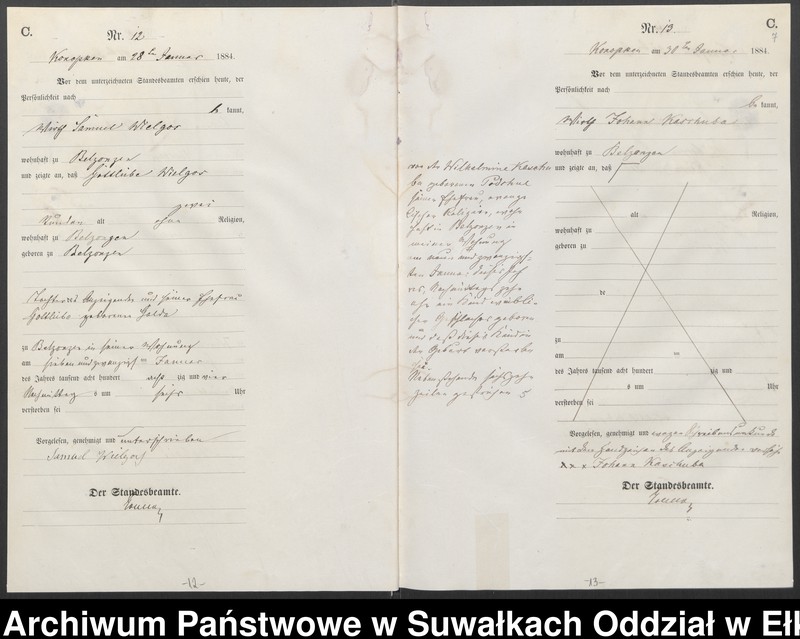 C.
Nr. 12
Konopken am 28ten Januar 1884.
Vor dem unterzeichneten Standesbeamten erschien heute, der
Persönlichkeit nach
kannt,
Wirth Samuel Wielgos
wohnhaft zu Belzonzen
und zeigte an, daß Gottliebe Wielgos
zwei
Stunden alt ohne Religion,
wohnhaft zu Belzonzen
geboren zu Belzonzen
Tochter des Anzeigenden und seiner Ehefrau
Gottliebe geborene
zu Belzonzen in seiner Wohnung
am sieben und zwanzigsten Januar
des Jahres tausend acht hundert achtzig und vier
Nachmittag s um sechs Uhr
verstorben sei
Vorgelesen, genehmigt und unterschrieben
Samuel
Der Standesbeamte.
-12-
Nr. 13
C.
7
Konopken am 30ten Januar 1884
Vor dem unterzeichneten Standesbeamten erschien heute, der
Persönlichkeit nach
be kannt,
Wirth Johann Kaschuba
wohnhaft zu Belzonzen
und zeigte an, daß
alt Religion,
wohnhaft zu
geboren zu
de
zu
am ten
des Jahres tausend acht hundert zig und
s um Uhr
verstorben sei
von der Wilhelmine Kaschu
ba geborenen
seiner Ehefrau, evange
lischer Religion, wohn
haft in Belzonzen in
seiner Wohnung
am neun und zwanzig
sten Januar dieses Jah
res, Nachmittags zehn
Uhr ein Kind weibli
chen Geschlechts geboren
und daß dieses Kind in
der Geburt verstorben
sei.
Nebenstehende sechszehn
Zeilen gestrichen
Vorgelesen, genehmigt und wegen Schreibensunkunde
mit dem Handzeichen des Anzeigenden versehen
x x x Johann Kaschuba
Der Standesbeamte.
-13-
Archiwum Państwowe w Suwałkach Oddział w Eł